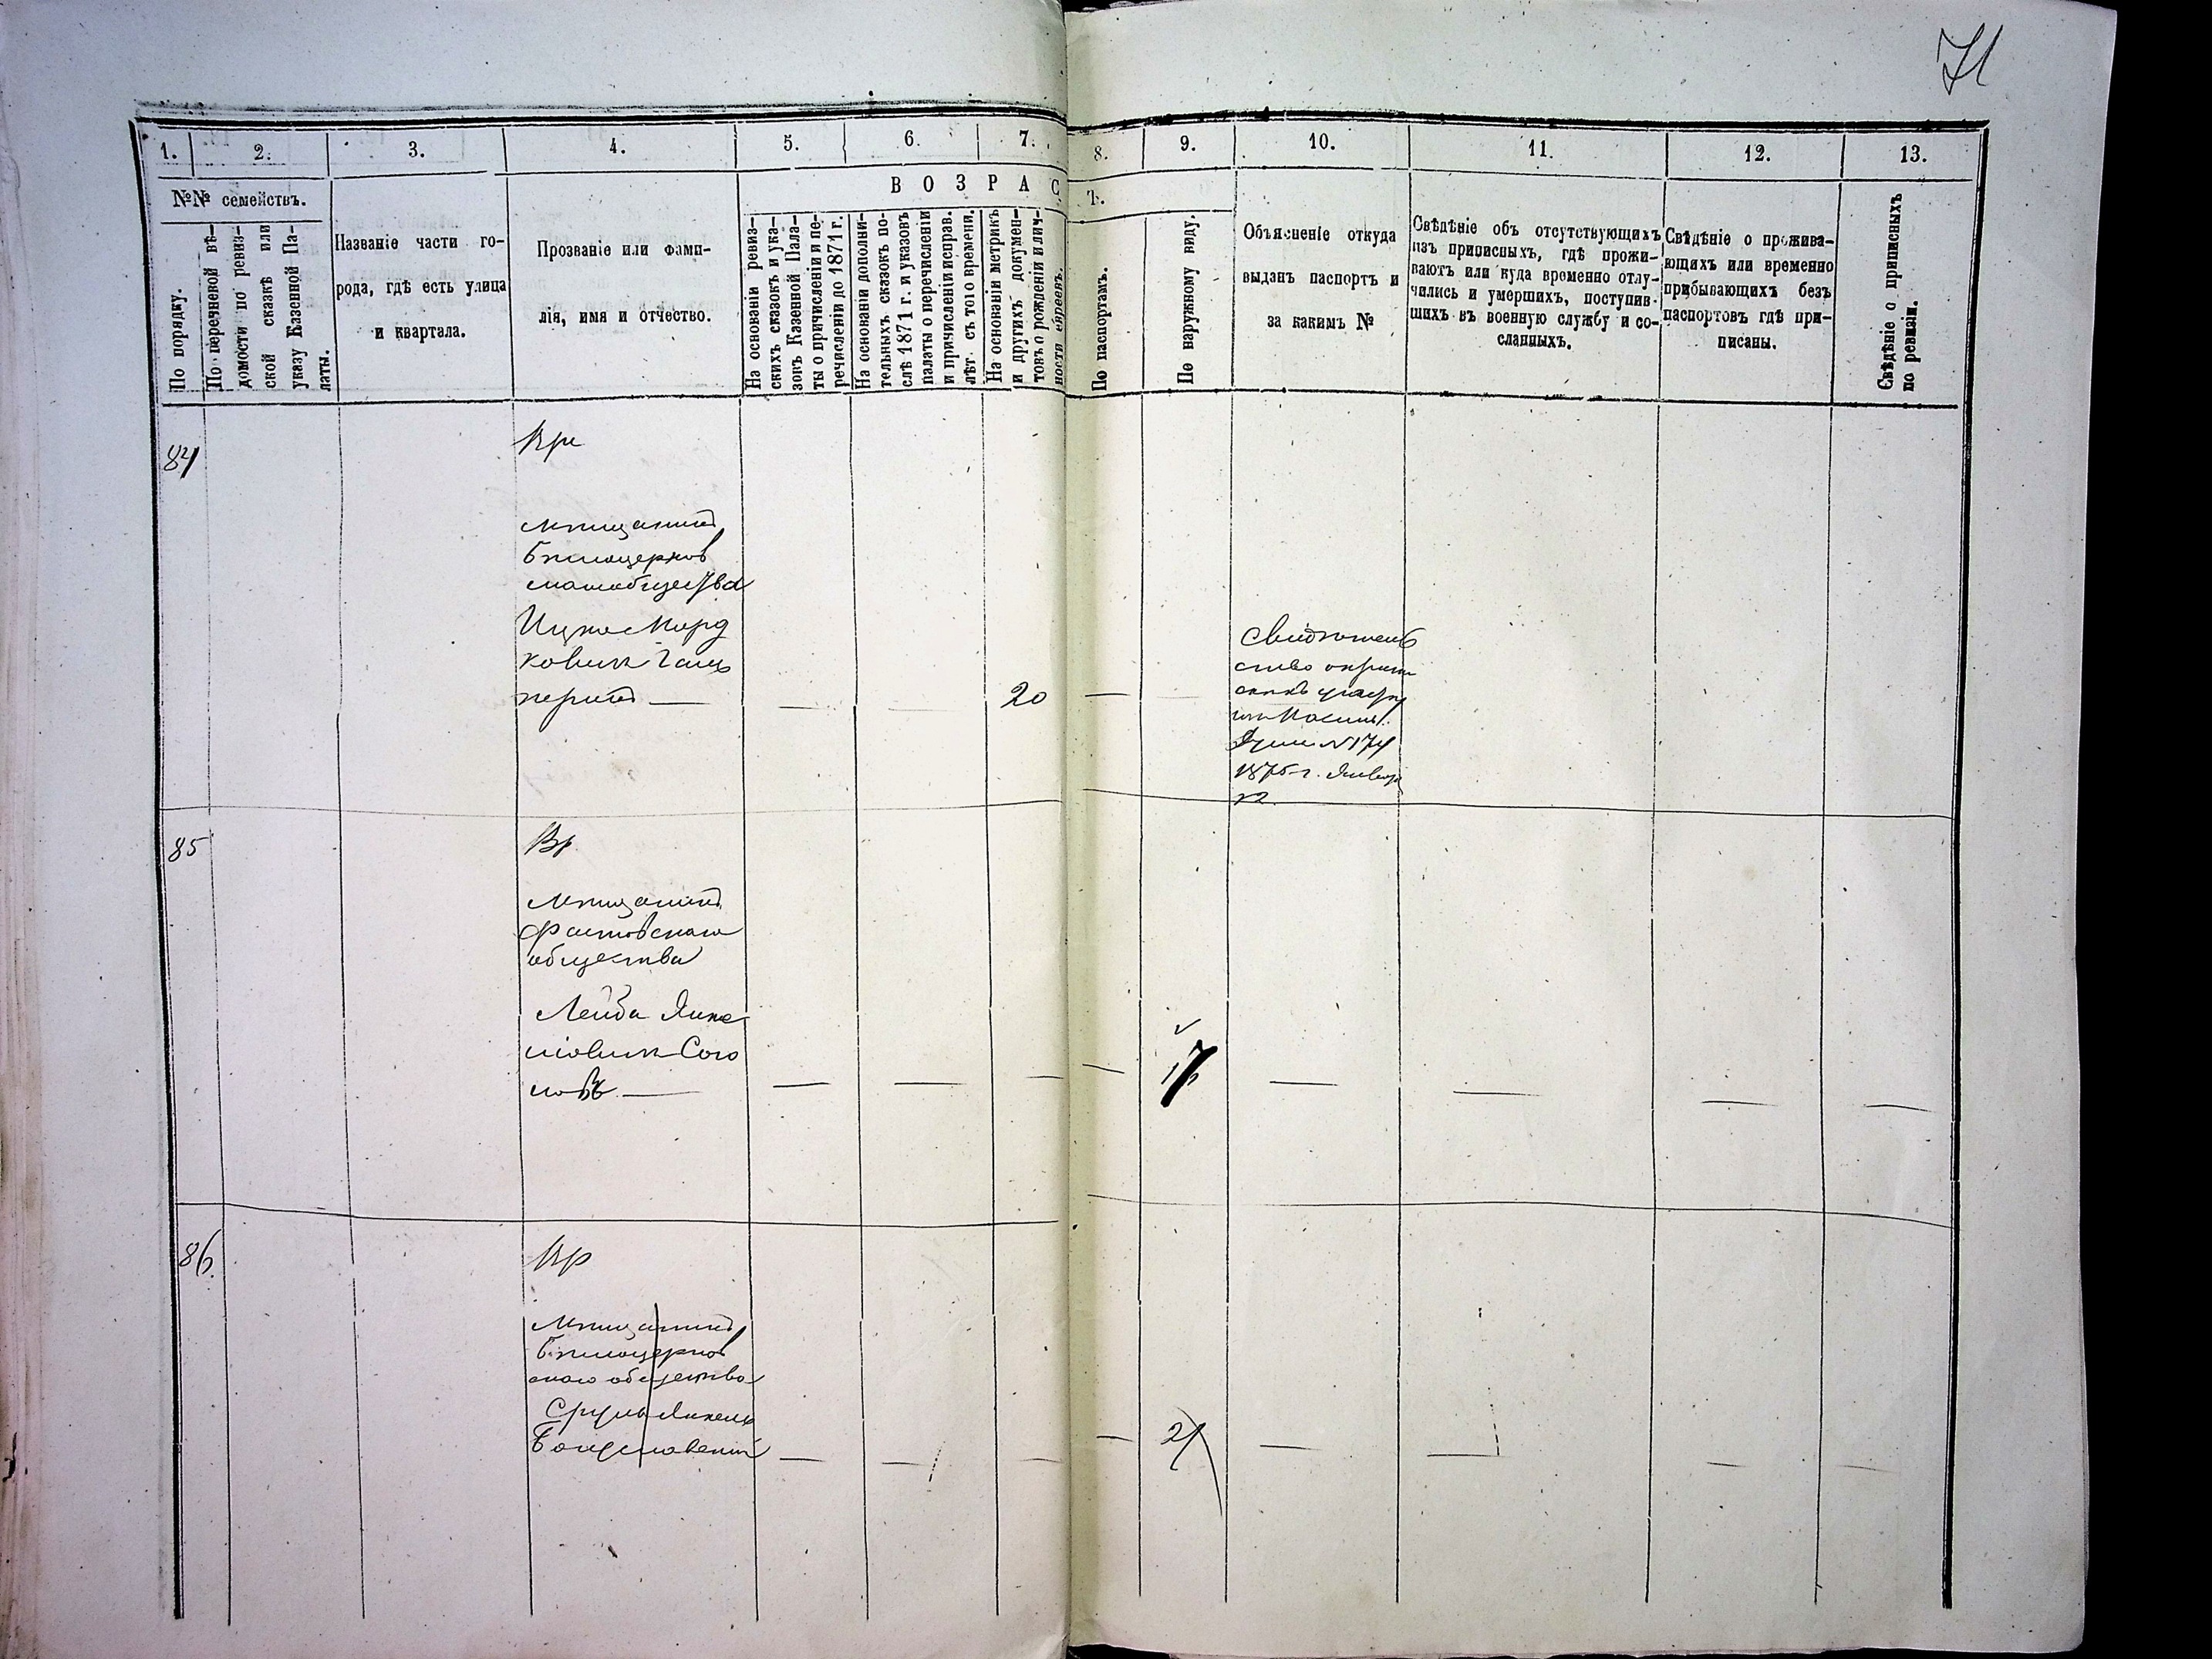 71
1.
2.
3.
4.
5.
6.
7.
8.
9.
10.
11.
12.
13.
№№ семействъ.
По порядку.
По перечневой вѣ-
домости по ревиз-
ской сказкѣ или
указу Казенной Па-
латы.
Названіе части го-
рода, гдѣ есть улица
и квартала.
Прозваніе или фами-
лія, имя и отчество.
ВОЗРАС
Т.
На основаніи ревиз-
скихъ сказокъ и ука-
зокъ Казенной Пала-
ты о причисленіи и пе-
речисленіи до 1871 г.
На основаніи дополни-
тельныхъ сказокъ по-
слѣ 1871 г. и указовъ
палаты о перечисленіи
и причисленіи исправ.
лѣт. съ того времени.
На основаніи метрикъ
и другихъ докумен-
товъ о рожденіи и лич-
ности евреевъ.
По паспортамъ.
По наружному виду.
Объясненіе откуда
выданъ паспортъ и
за какимъ №
Свѣдѣніе объ отсутствующихъ
изъ приписныхъ, гдѣ прожи-
ваютъ или куда временно отлу-
чились и умершихъ, поступив-
шихъ въ военную службу и со-
сланныхъ.
Свѣдѣніе о прожива-
ющихъ или временно
прибывающихъ безъ
паспортовъ гдѣ при-
писаны.
Свѣдѣніе о приписныхъ
по ревизіи.
84
Вр
мѣщанинъ
бѣлоцерков
скаго общества
Ицко Морд
ковичъ Гальперинъ
20
Свидѣтель
ство
участку
№ 174
1875 г. Январ
85
Вр
мѣщанинъ
Фастовскаго
общества
Лейба Янке
лiовичъ Соколовъ
17
86
Вр
мѣщанинъ
бѣлоцерков
скаго общества
Сруль Янкель
Богуславскій
21